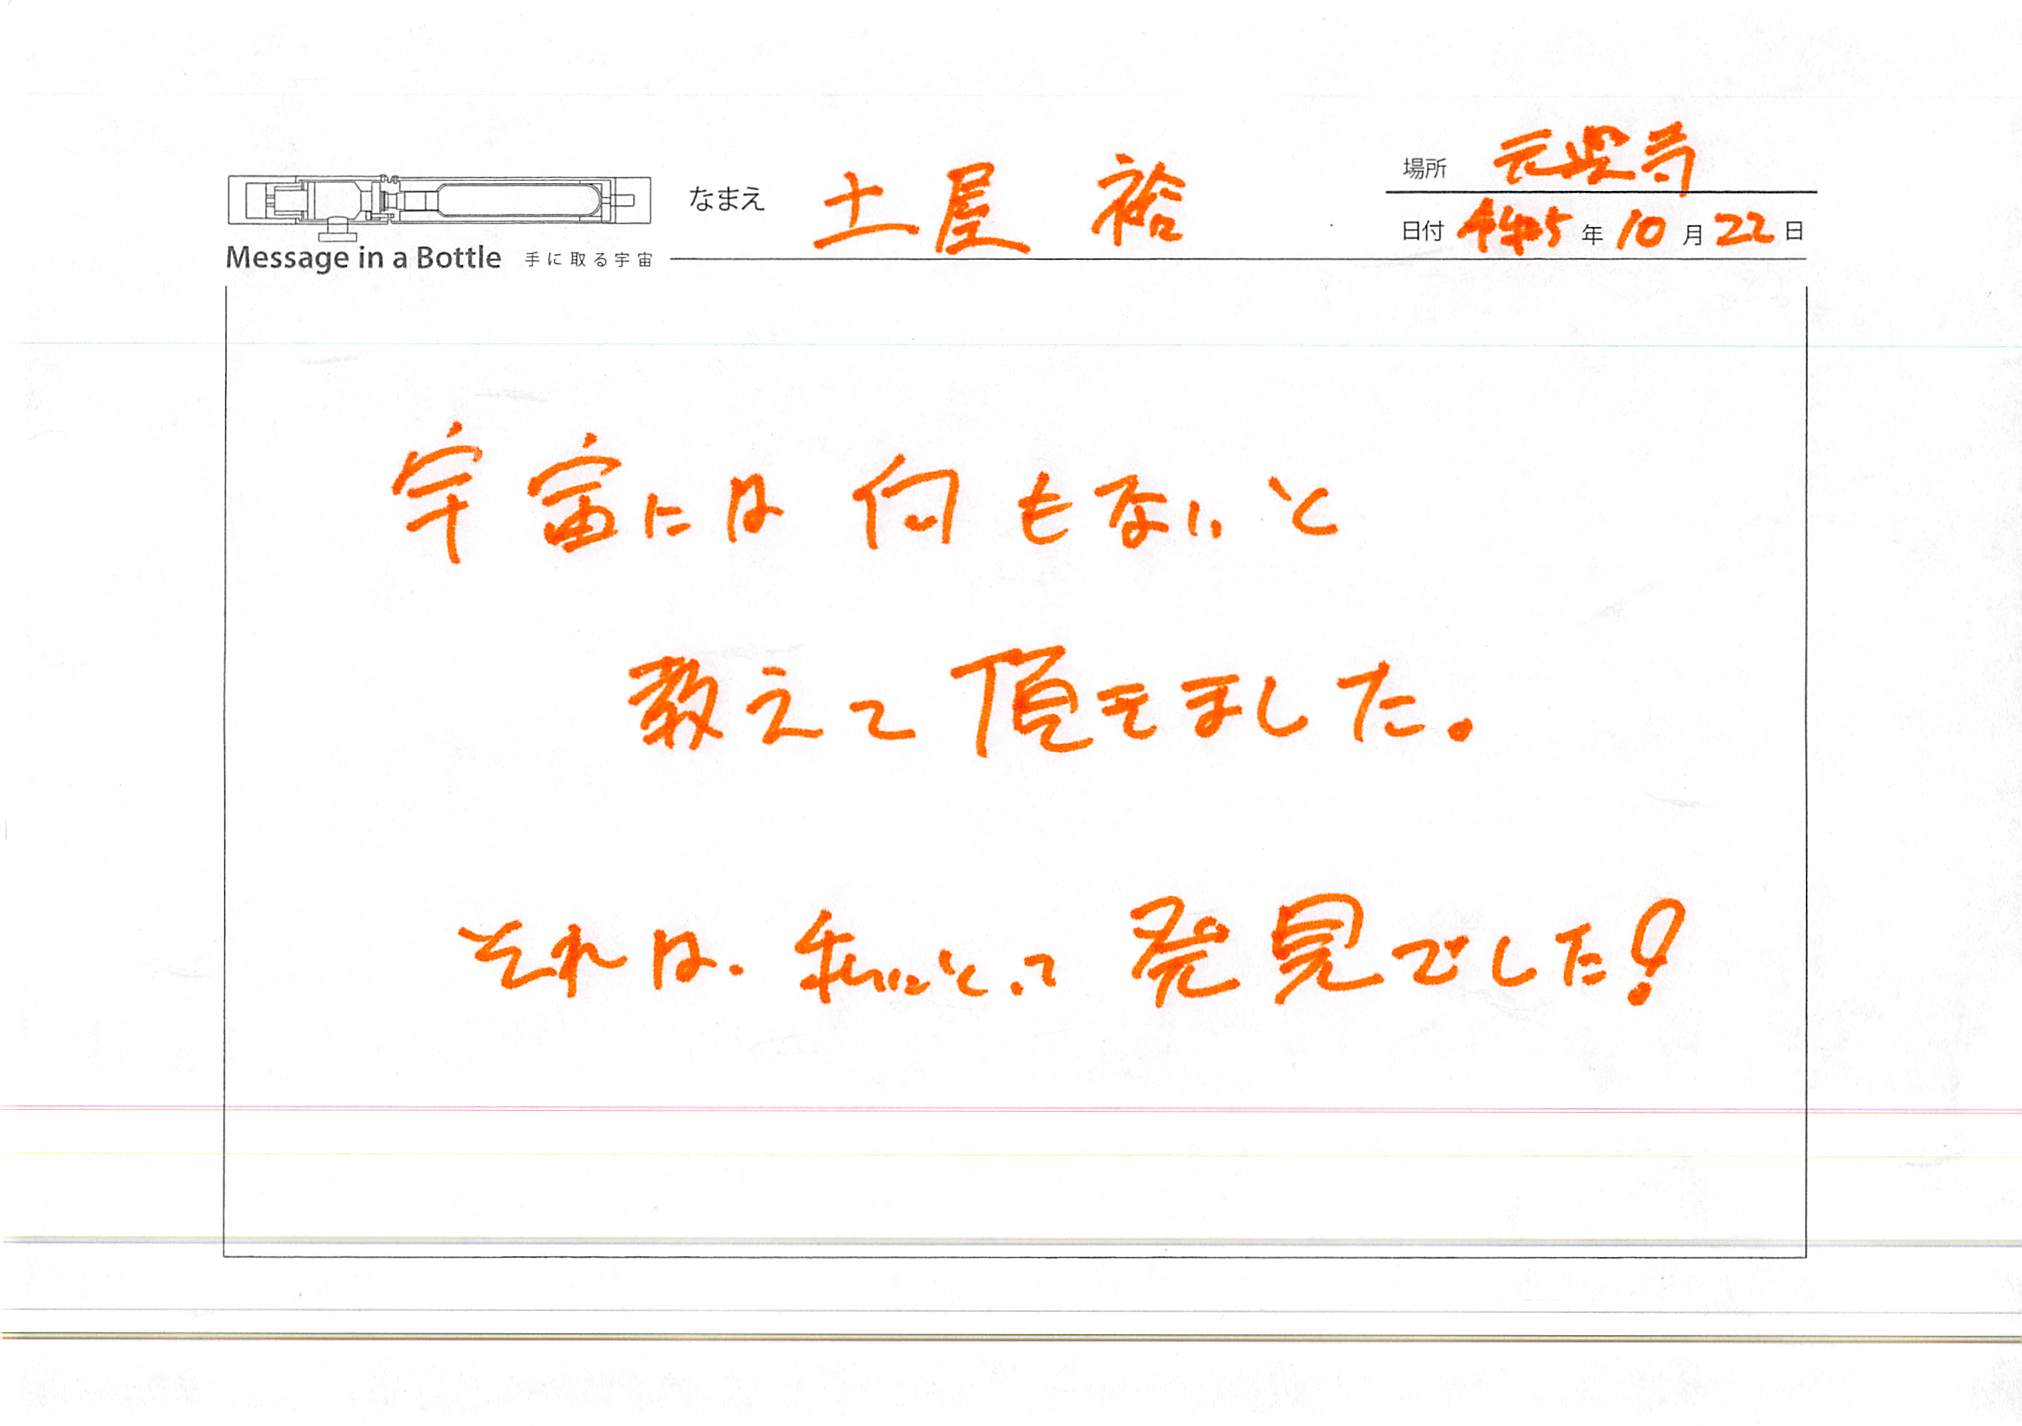 場所 元興寺
なまえ 土屋 裕
日付 年 10 月 22 日
Message in a Bottle 手に取る宇宙
宇宙には何もないと
教えて頂きました。
それは、私にとって発見でした!